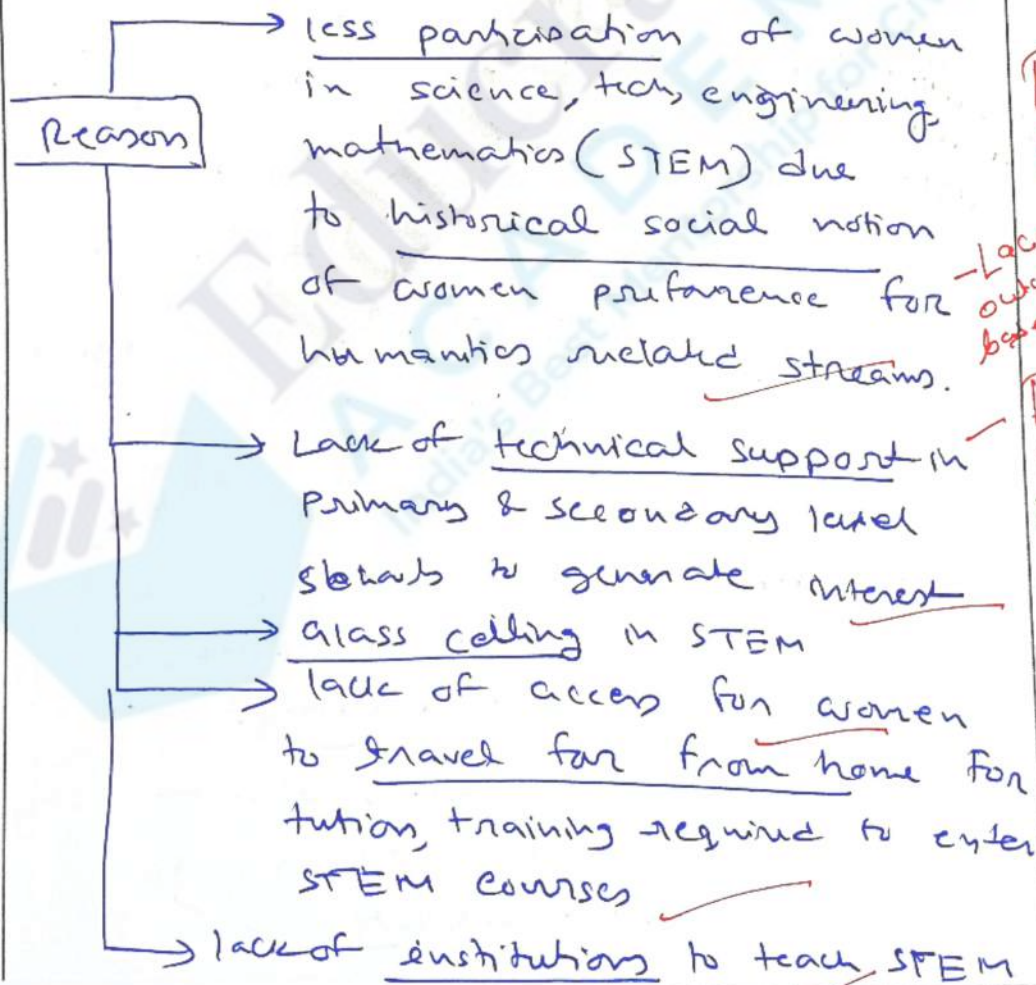 less participation of women
in science, tech, engineering,
mathematics (STEM) due
Reason
to historical social notion
of women prefarence for
humanities related streams.
Lack of technical support in
primary & secondary level
to generate interest
Glass ceiling in STEM
lack of access for women
to travel far from home for
tution, training required to enter
STEM courses
lack of institutions to teach STEM